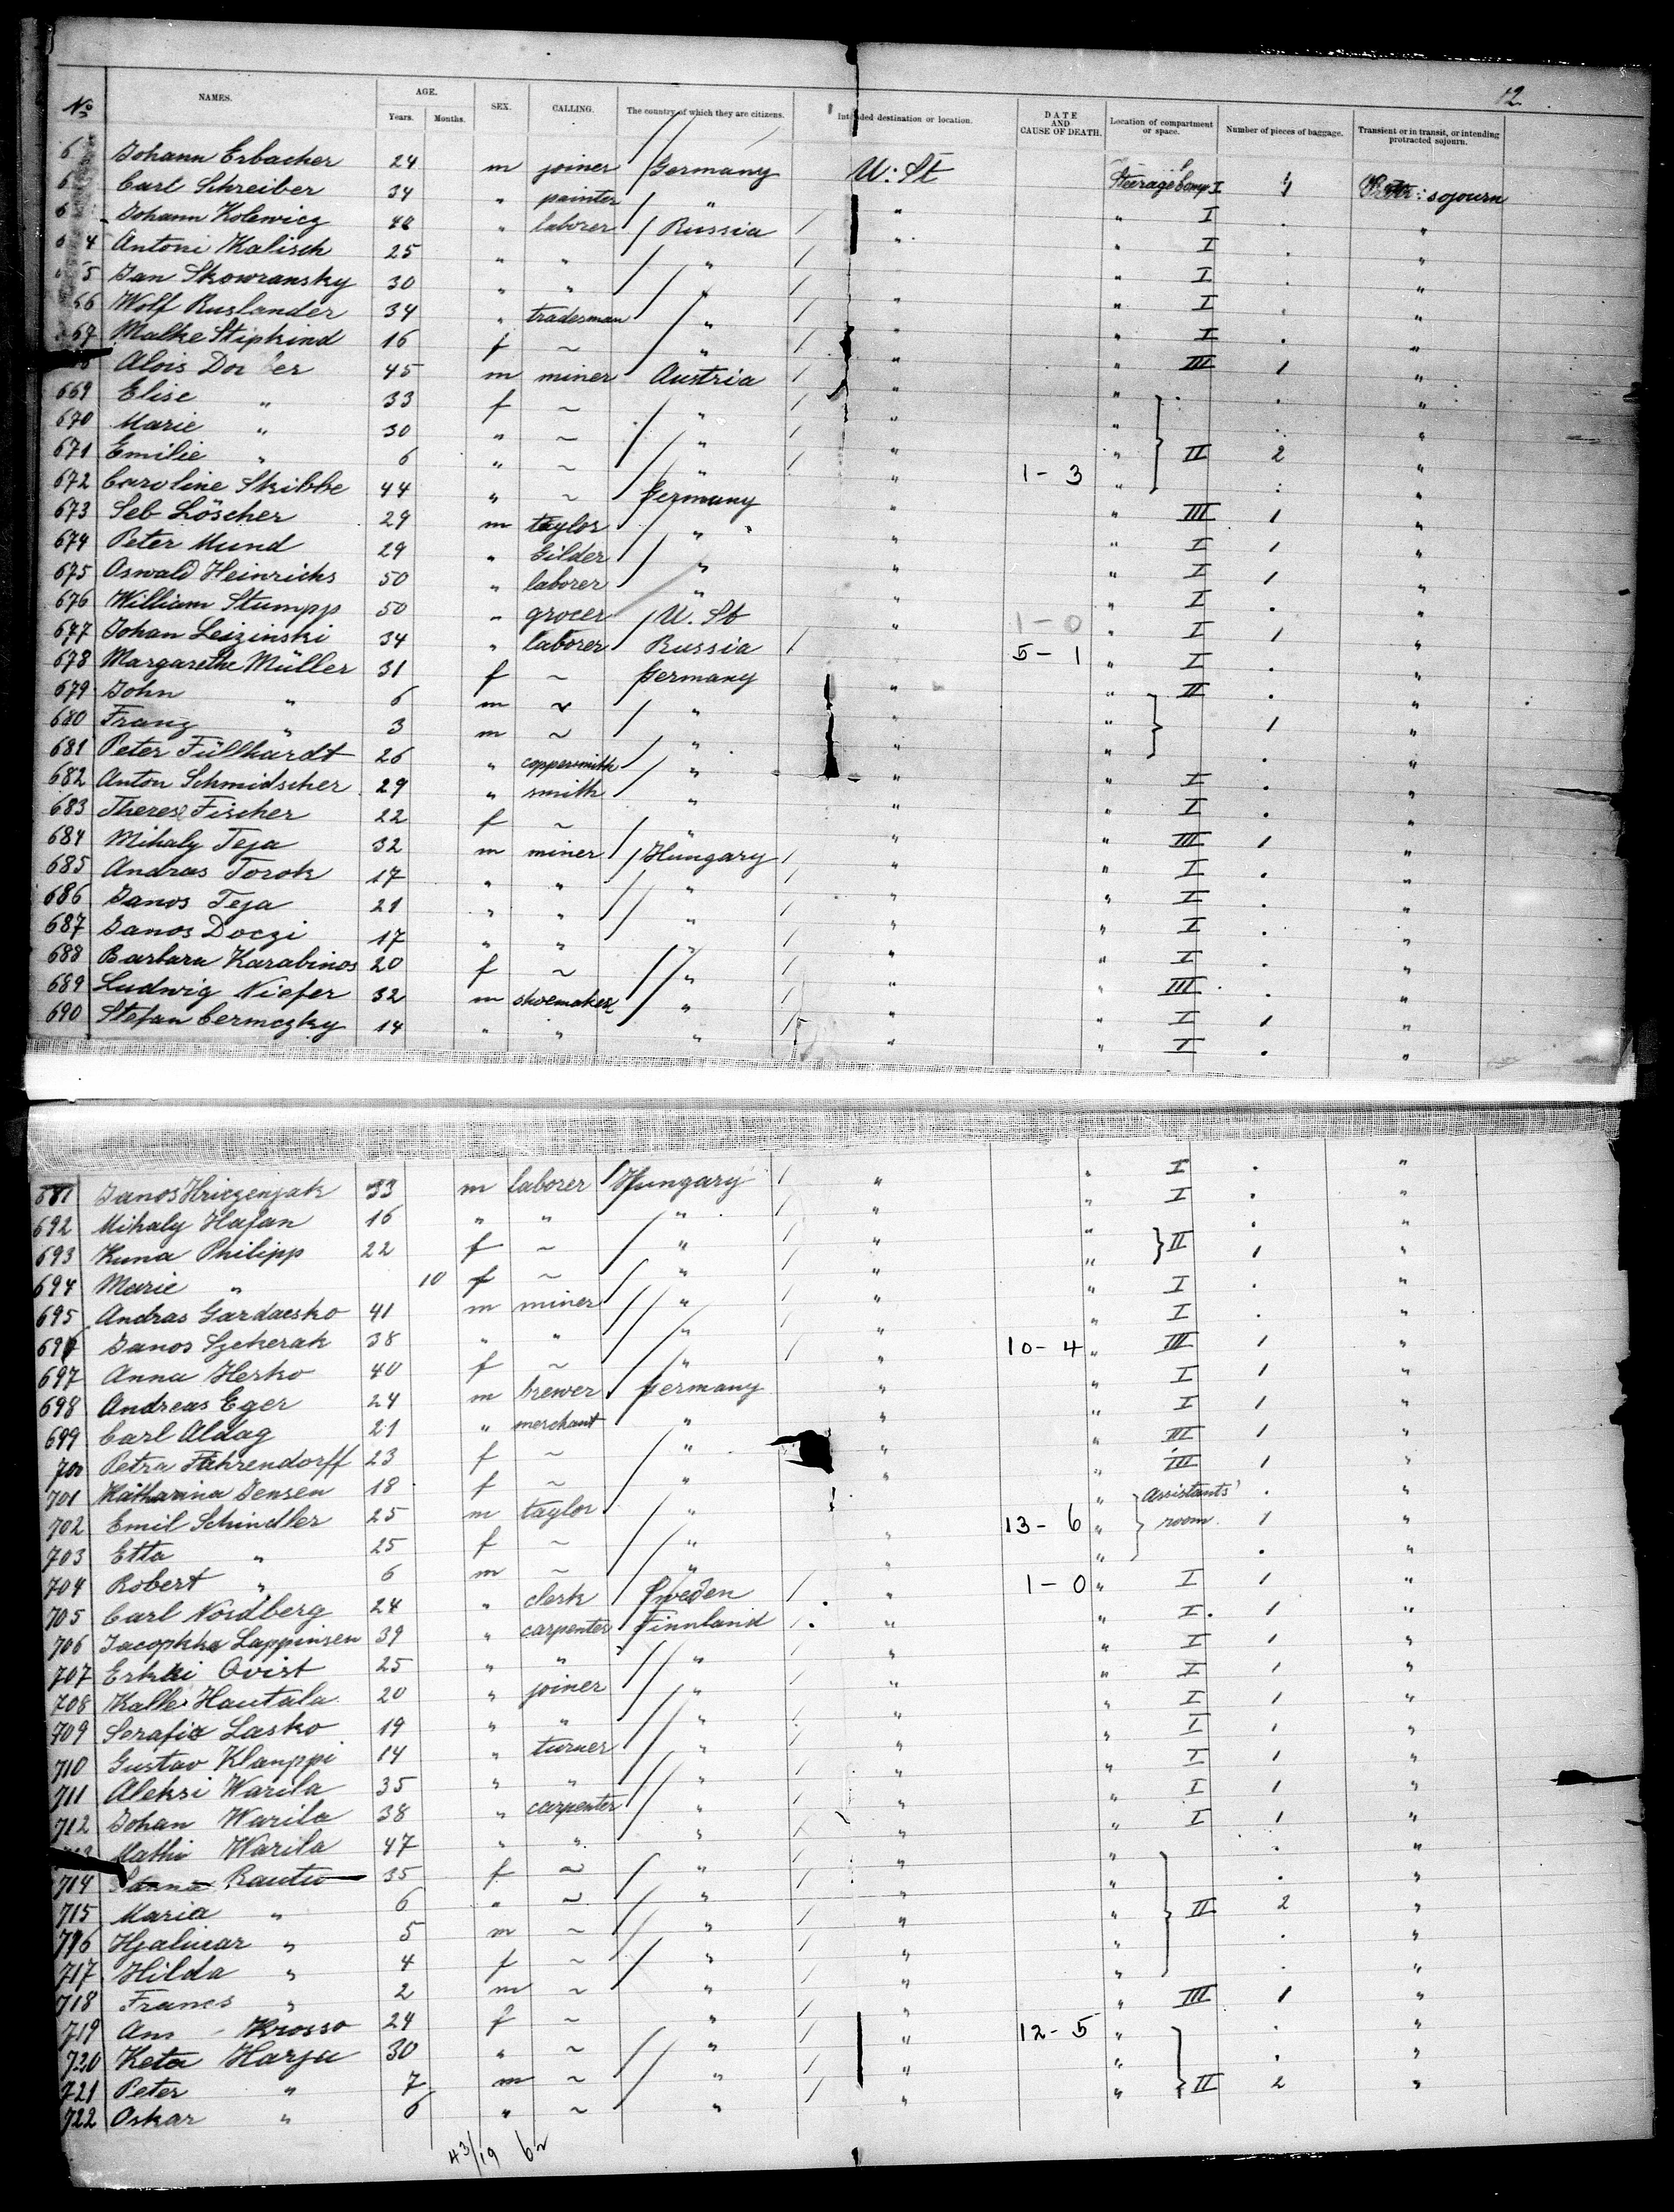 12
No NAMES. AGE. Years. Months. SEX. CALLING. The country of which they are citizens. Intended destination or location. DATE AND CAUSE OF DEATH. Location of compartment or space. Number of pieces of baggage. Transient or in transit, or intending protracted sojourn.
6 Johann Erbacher 24 m joiner Germany U. St Steerage Comp I 1 sojourn
6 Carl Schreiber 34 " painter " " " I . "
6 Johann Kolewicz " laborer Russia " " I . "
6 4 Antoni Kalisch 25 " " " " " I . "
5 Jan Skowransky 30 " " " " " I . "
66 Wolf Ruslander 34 " tradesman " " " I . "
67 Malke Stipkind 16 f ~ " " " III 1 "
Alois Do er 45 m miner Austria " " . "
669 Elise " 33 f ~ " " " . "
670 Marie " 30 " ~ " " " II 2 "
671 Emilie " 6 " ~ " " 1-3 " . "
672 Caroline Skibbe 44 " ~ Germany " " III 1 "
673 Seb Löscher 29 m taylor " " " I 1 "
674 Peter Mund 29 " Gilder " " " I 1 "
675 Oswald Heinrichs 50 " laborer " " " I . "
676 William Stumpp 50 " grocer U. St " 1-0 " I 1 "
677 Johan Leizinski 34 " laborer Russia 5-1 " I . "
678 Margarethe Müller 31 f ~ Germany " " II . "
679 John " 6 m ~ " " " 1 "
680 Franz " 3 m ~ " " " . "
681 Peter Füllhardt 26 " coppersmith " " " I . "
682 Anton Schmidscher 29 " smith " " " I . "
683 Therese Fischer 22 f ~ " " " III 1 "
684 Mihaly Teja 32 m miner Hungary " " I . "
685 Andras Torok 17 " " " " " I . "
686 Janos Teja 21 " " " " " I . "
687 Janos Doczi 17 " " " " " I . "
688 Barbara Karabinos 20 f ~ " " " III . "
689 Ludwig Niefer 32 m shoemaker " " " I 1 "
690 Stefan Cermezky 14 " " " " " I . "
681 Janos Hriczenjak 33 m laborer Hungary " " I . "
692 Mihaly Hafan 16 " " " " " I . "
693 Kuna Philipp 22 f ~ " " " II . "
694 Marie " 10 f ~ " " " 1 "
695 Andras Gardacsko 41 m miner " " " I . "
696 Janos Szekerak 38 " " " " " I . "
697 Anna Herko 40 f ~ " " 10-4 " III 1 "
698 Andreas Eger 24 m brewer Germany " " I 1 "
699 Carl Aldag 21 " merchant " " " I 1 "
700 Petra Fahrendorff 23 f ~ " " " III 1 "
701 Katharina Jensen 18 f ~ " " III 1 "
702 Emil Schindler 25 m taylor " " Assistants' . "
703 Etta " 25 f ~ " " 13-6 " room 1 "
704 Robert " 6 m ~ " " " . "
705 Carl Nordberg 24 " clerk Sweden " 1-0 " I 1 "
706 Lappinsen 39 " carpenter Finnland " " I 1 "
707 Erkki Qvist 25 " " " " " I 1 "
708 Kalle Hautala 20 " joiner " " " I 1 "
709 Serafia Lasko 19 " " " " " I 1 "
710 Gustav Klanppi 14 " turner " " " I 1 "
711 Aleksi Warila 35 " " " " " I 1 "
712 Johan Warila 38 " carpenter " " " I 1 "
Mathi Warila 47 " " " " " I 1 "
714 Sanna Rautio 35 f ~ " " " . "
715 Maria " 6 " ~ " " " . "
716 Hjalmar " 5 m ~ " " " II 2 "
717 Hilda " 4 f ~ " " " . "
718 Frans " 2 m ~ " " " . "
719 Krosso 24 f ~ " " " III 1 "
720 Keta Harju 30 " ~ " " 12-5 " . "
721 Peter " 7 m ~ " " " . "
722 Oskar " 6 " ~ " " " II 2 "
43/19